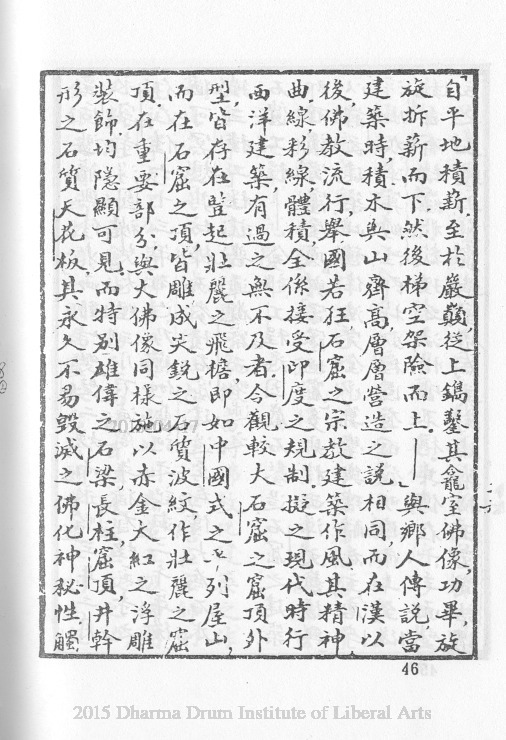 「自平地積薪.至於巖巔,從上鐫鑿其龕室佛像,功畢,旋
旋拆薪而下.然後梯空架險而上.——」與鄉人傳說,當
建築時,積木與山齊高,層層營造之說相同,而在漢以
後,佛教流行,舉國若狂,石窟之宗教建築作風其精神,
曲線,彩線,體積,全係接受印度之規制,擬之現代時行
西洋建築,有過之無不及者.今觀較大石窟之窟頂外
型,皆存在豎起壯麗之飛檐,即如中國式之列屋山,
而在石窟之頂,皆雕成尖銳之石質波紋作壯麗之窟
頂.在重要部分,與大佛像同樣施以赤金大紅之浮雕
裝飾.均隱顯可見,而特別雄偉之石梁,長柱,窟頂,井幹
形之石質天花板,其永久不易毀滅之佛化神秘性.觸
46
2015 Dharma Drum Institute of Liberal Arts